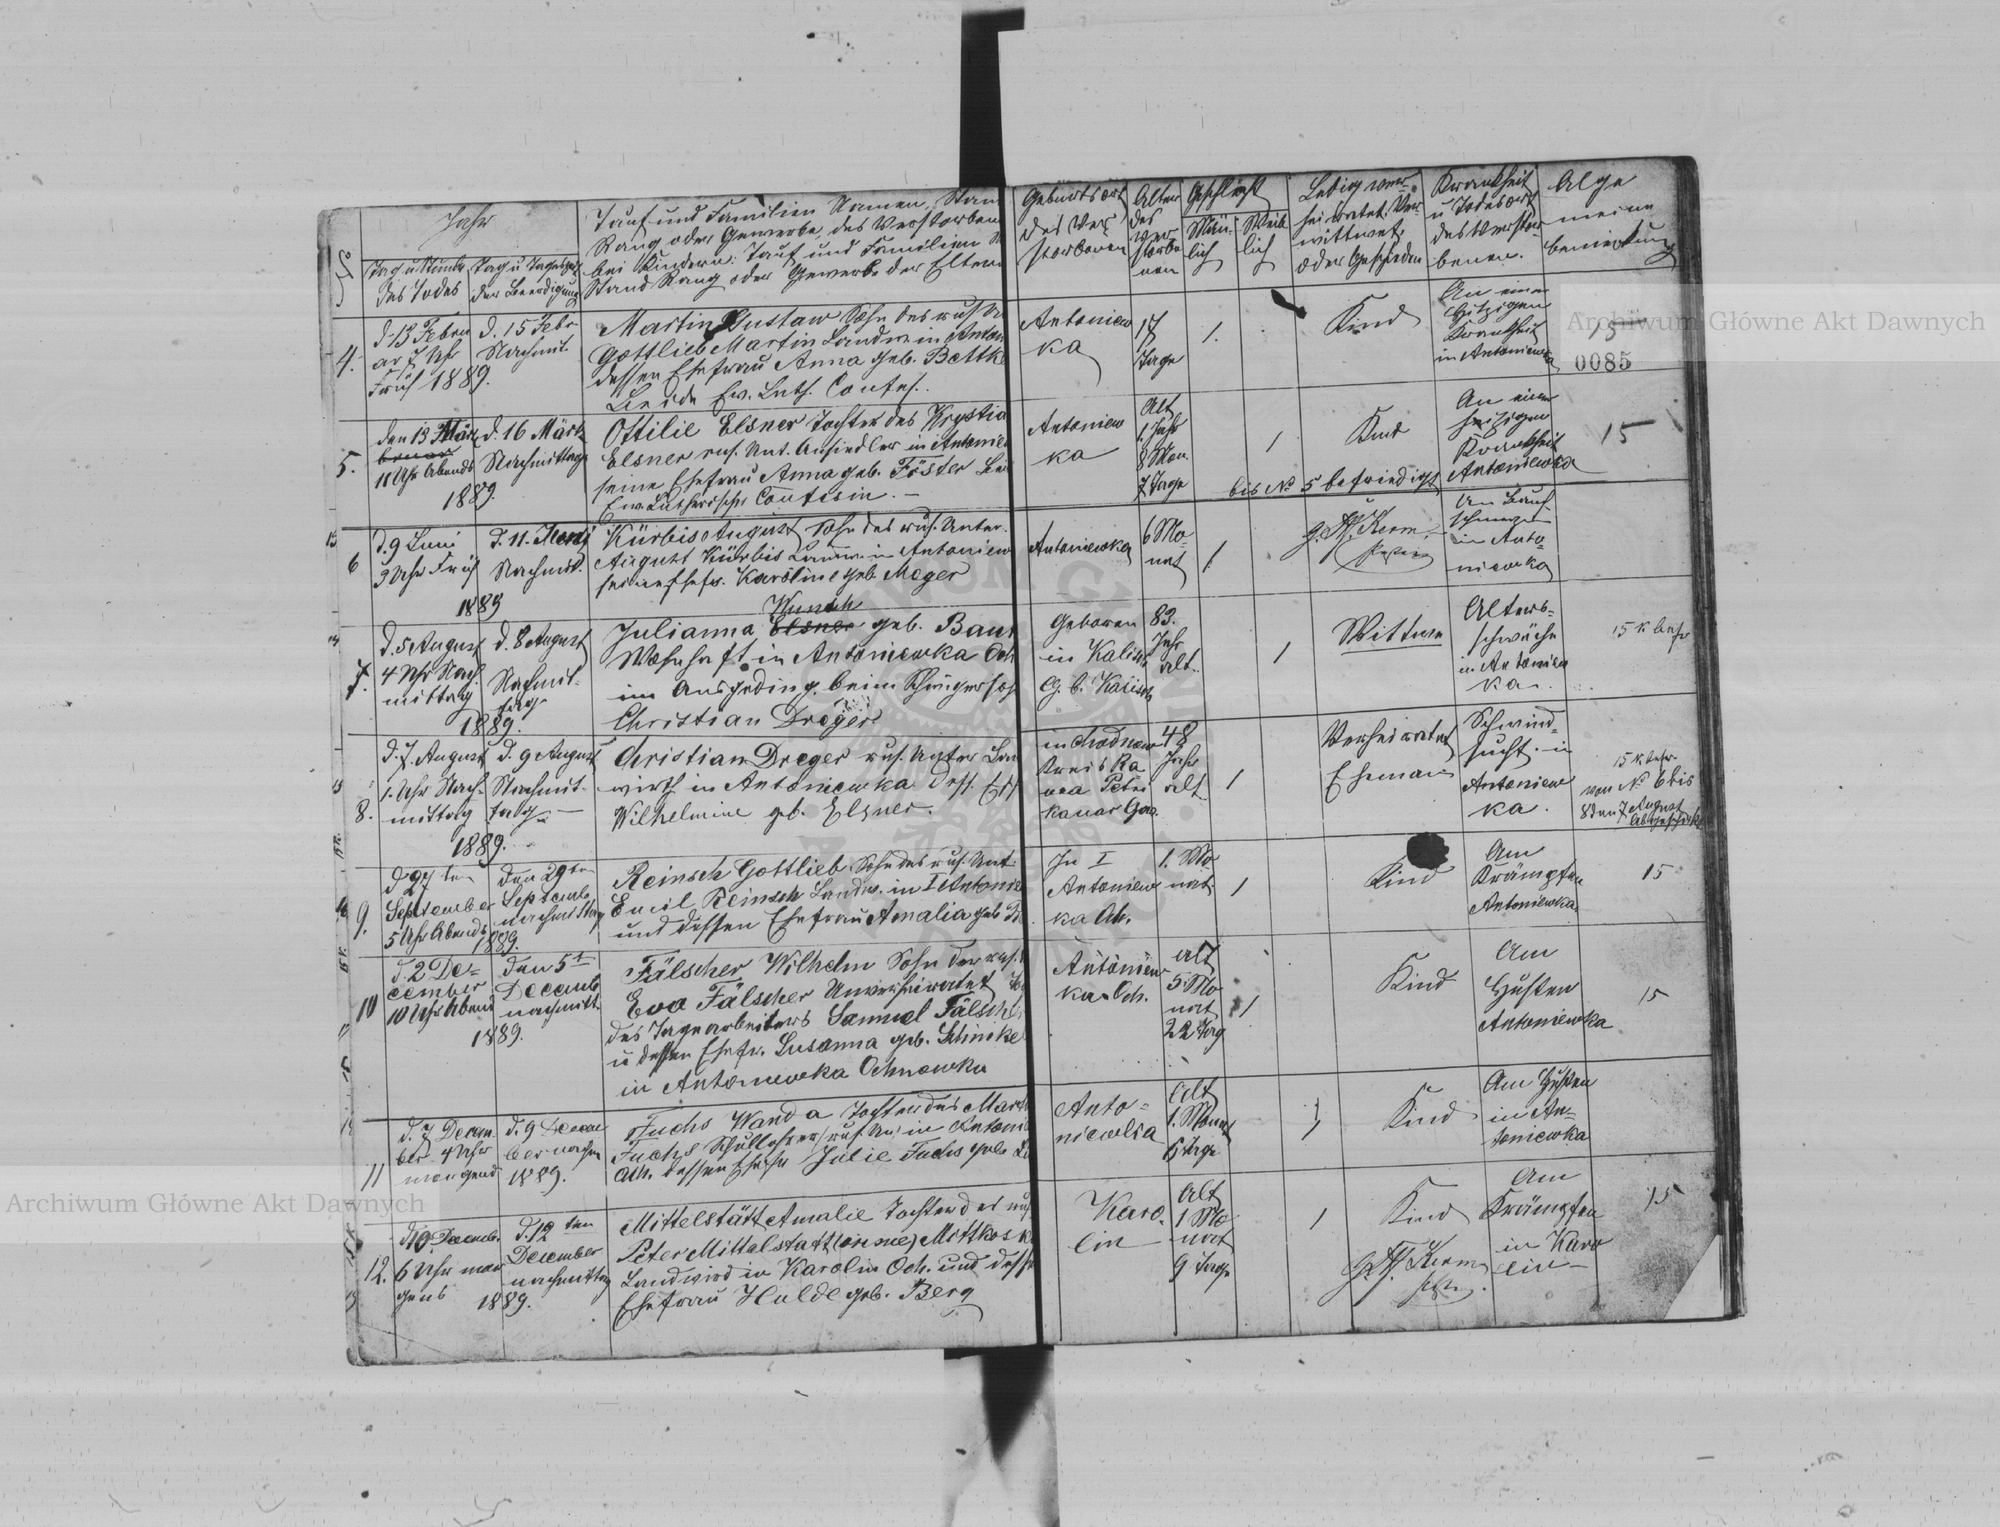 Archiwum Główne Akt Dawnych
0085
No
Jahr
Tag u Stunde
des Todes
der Beerdigung
Tauf und Familien Namen, Stan
Rang oder Gewerbe, des Verstorben
bei Kindern: Tauf und Familien
Stand Rang oder Gewerbe der Eltern
Geburtsort
des Ver
storbenen
Alter
des
Ver
storbe
nen
Geschlecht
Män-
lich
Weib
lich
Ledig ver-
heiratet, Ver-
wittwet,
oder Geschieden
Krankheit
u Todesort
des Verstor
benen.
Alge
meine
bemerkung
4.
d. 13 Febru
ar 7 Uhr
Früh 1889.
d. 15 Febr
Nachmit.
Martin Gustaw Sohn des russ. U
Gottlieb Martin Landw. in Anton
dessen Ehefrau Anna geb. Bettk
beide Ev. Luth. Confes.
Antoniew
ka
17
Tage
1.
Kind
An einer
Hitzigen
Krankheit
in Antoniewka
15
5.
den 13 März
11 Uhr Abends
1889.
d. 16 März
Nachmittag
Ottilie Elsner Tochter des Krystia
Elsner rus. Unt. Ansiedler in Antonie
seine Ehefrau Anna geb. Föster
Ev. Lutherischer Confesin. –
Antoniew
ka
Alt
1 Jahr
8 Mon.
7 Tage
1
Kind
An einer
hitzigen
Krankheit
Antoniewka
15
bis No 5 befriedigt
6
d. 9 Juni
3 Uhr Früh
1889
d. 11. Juni
Nachmit.
Kürbis August, Sohn des rus. Unter.
August Kürbis Landw. in Antoniew
seine Ehefr. Karoline geb. Meger
Antoniewka
6 Mo-
nat
1
in Anto-
niewka
7.
d. 5 August
4 Uhr Nach
mittag
1889.
d. 8 August
Nachmit-
tag
Wunsch
Julianna Elsner geb. Bau
Wohnhaft in Antoniewka Och
im Ausgeding. beim Schwigersoh
Christian Dreger
Geboren
in Kalisch
G. b. Kalisch
83.
Jahr
alt.
1
Wittwe
Alters-
schwäche
in Antoniew
ka.
8.
d. 7. August
1. Uhr Nach-
mittag
1889.
d. 9 August
Nachmit-
tag –
Christian Dreger rus. Unter Lan
wirth in Antoniewka Dess. Eh
Wilhelmine geb. Elsner.
Kreis Ra
wa Petri
kauer Gou.
48
Jahr
alt
1
Verheiratet
Eheman
Schwind-
sucht. in
Antoniew
ka.
von No 6 bis
8 den 7 August
9.
d 27 ten
September
5 Uhr Abends
1889.
den 29 ten
September
nachmittag
Reinsch Gottlieb Sohn des rus. Unt.
Emil Reinsch Landw. in I Antonie
und dessen Ehefrau Amalia geb
In I
Antoniew
ka Och.
1. Mo
nat
1
Kind
Am
Krämpfen
Antoniewka
15
10
d. 2 De-
cember
10 Uhr Abend
1889.
den 5t
Decemb
nachmitt
Fälscher Wilhelm Sohn der rus.
Eva Fälscher Unverheiratet
des Tagearbeiters Samuel Fälsch
u dessen Ehefr. Susanna geb. Schinke
in Antoniewka Ochnowka
Antoniew
ka Och.
alt
5 Mo
nat
22 Tag
1
Kind
Am
Husten
Antoniewka
15
11
d. 7 Decem-
ber 4 Uhr
morgens
d. 9 Decem
ber nachm
1889.
Fuchs Wanda Tochter des Mart
Fuchs Schullehrer rus. Un. in Antoni
Och. dessen Ehefr Julie Fuchs geb.
Anto-
niewka
Alt
1. Monat
6 Tage
1
Kind
Am Husten
in An-
toniewka
12.
d 10 Decemb.
6 Uhr mor
gens
1889.
d. 12 ten
December
nachmittag
Mittelstätt Amalie Tochter des rus
Peter Mittelstätt
Landwird in Karolin Och. und dess
Ehefrau Hulde geb. Berg
Karo.
lin
Alt
1 Mo
nat
9 Tage
1
Kind
Am
Krämpfen
in Karo
lin –
15
Archiwum Główne Akt Dawnych